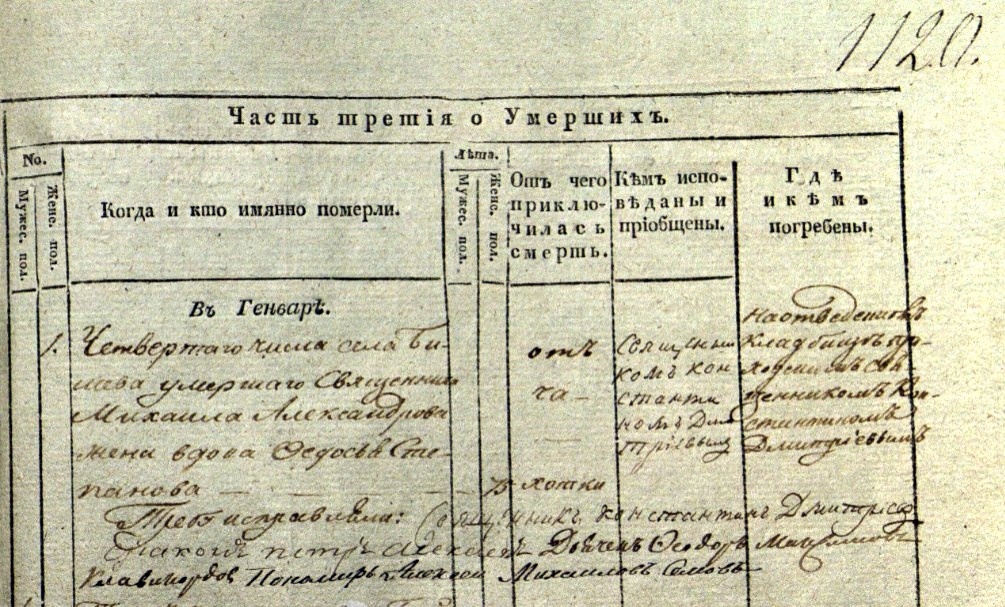 1120.
Часть третія о Умершихъ.
No.
Мужес. пол.
Женс. пол.
Когда и кто имянно померли.
Лѣта.
Мужес. пол.
Женс. пол.
Отъ чего
приклю-
чилась
смерть.
Кѣмъ испо-
вѣданы и
пріобщены.
Гдѣ
и кѣмъ
погребены.
Въ Генварѣ.
1.
Четвертаго числа села Би-
шева умершаго Священника
Михаила Александрова
жена вдова Ѳедосья Сте-
панова
75
отъ
ча-
хотки
Священни
комъ кон
станти
номъ Дми
тріевымъ
на отведенномъ
кладбищѣ при-
ходскимъ свя-
щенникомъ Кон-
стантиномъ
Дмитріевымъ
Требъ исправляли: Священникъ Константинъ Дмитріевъ
Діаконъ петръ Алексѣевъ Дьячекъ Ѳеодоръ Максимовъ
Пономарь Алексей Михайловъ